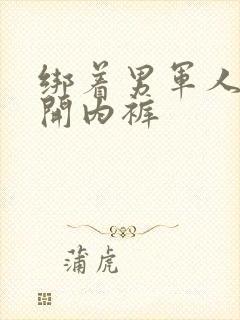 绑着男军人
開内裤
蒲虎